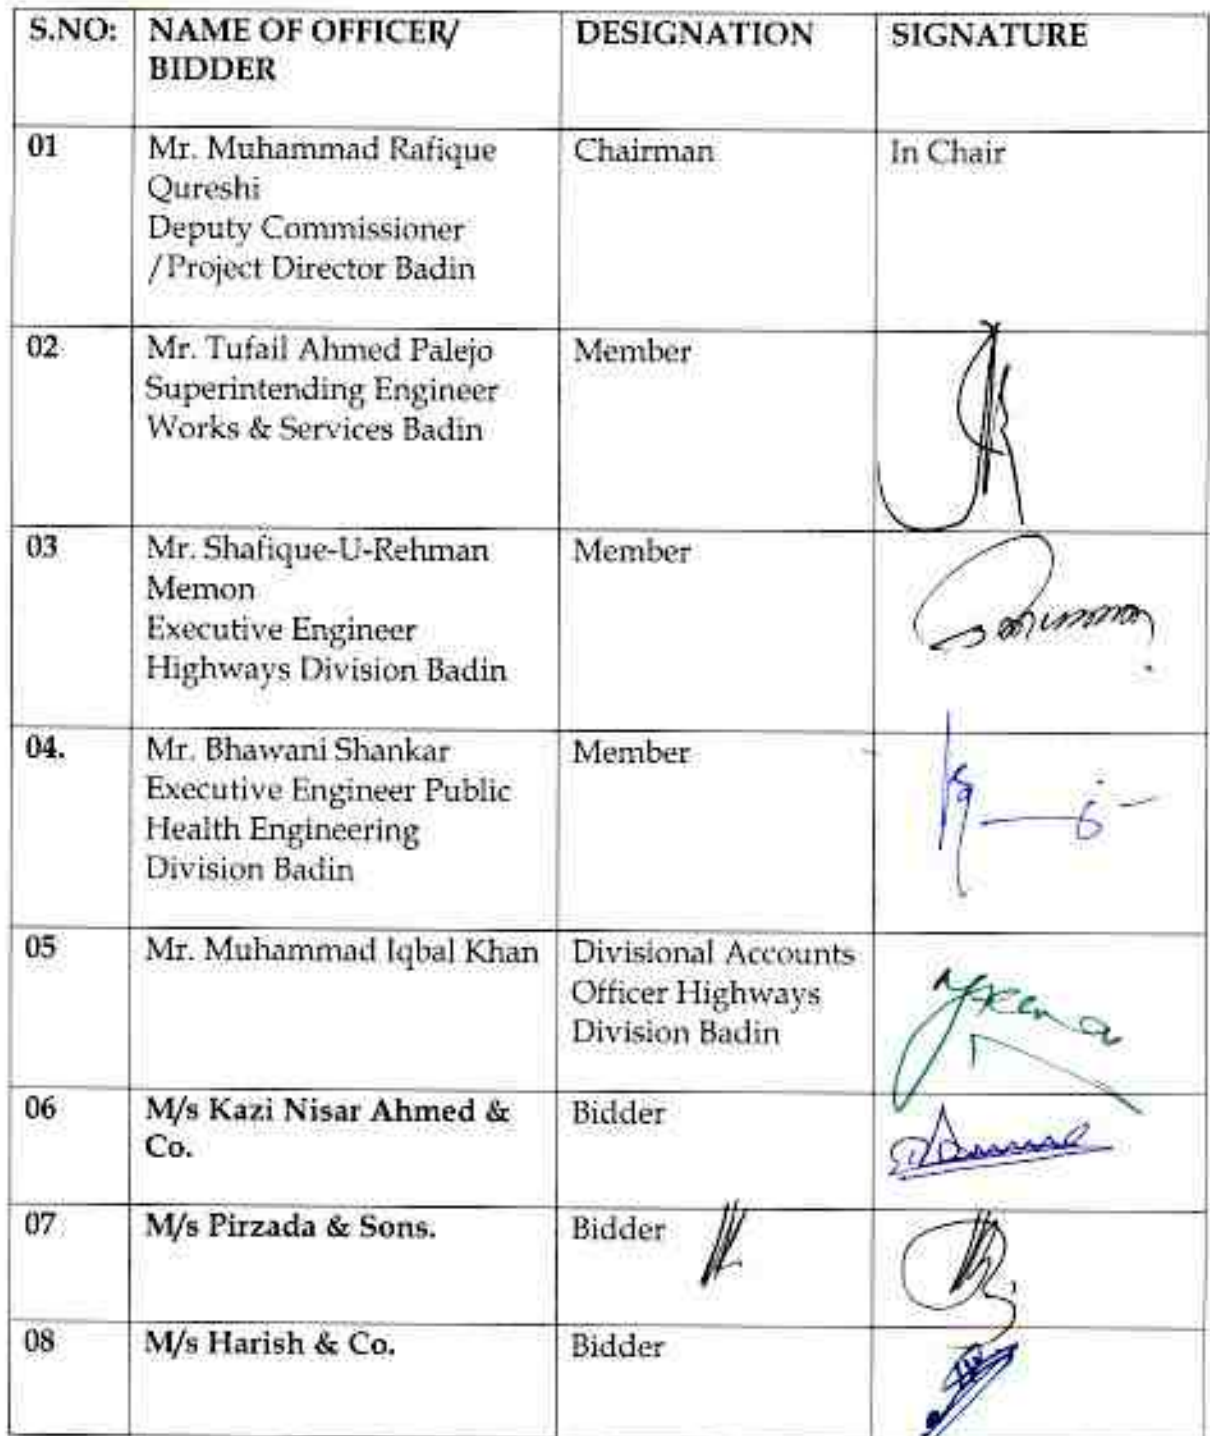 S.NO: NAME OF OFFICER/ DESIGNATION SIGNATURE
BIDDER
01 Mr. Muhammad Rafique Chairman In Chair
Qureshi
Deputy Commissioner
/Project Director Badin
02 Mr. Tufail Ahmed Palejo Member
Superintending Engineer
Works & Services Badin
03 Mr. Shafique-U-Rehman Member
Memon
Executive Engineer
Highways Division Badin
04. Mr. Bhawani Shankar Member
Executive Engineer Public
Health Engineering
Division Badin
05 Mr. Muhammad Iqbal Khan Divisional Accounts
Officer Highways
Division Badin
06 M/s Kazi Nisar Ahmed & Bidder
Co.
07 M/s Pirzada & Sons. Bidder
08 M/s Harish & Co. Bidder